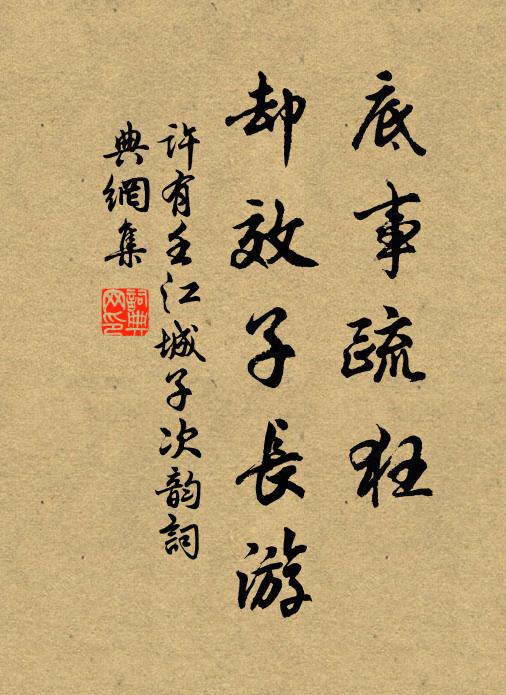 底事疏狂
却效子長游
許有壬江城子次韵詞
典網集
詞典
网印